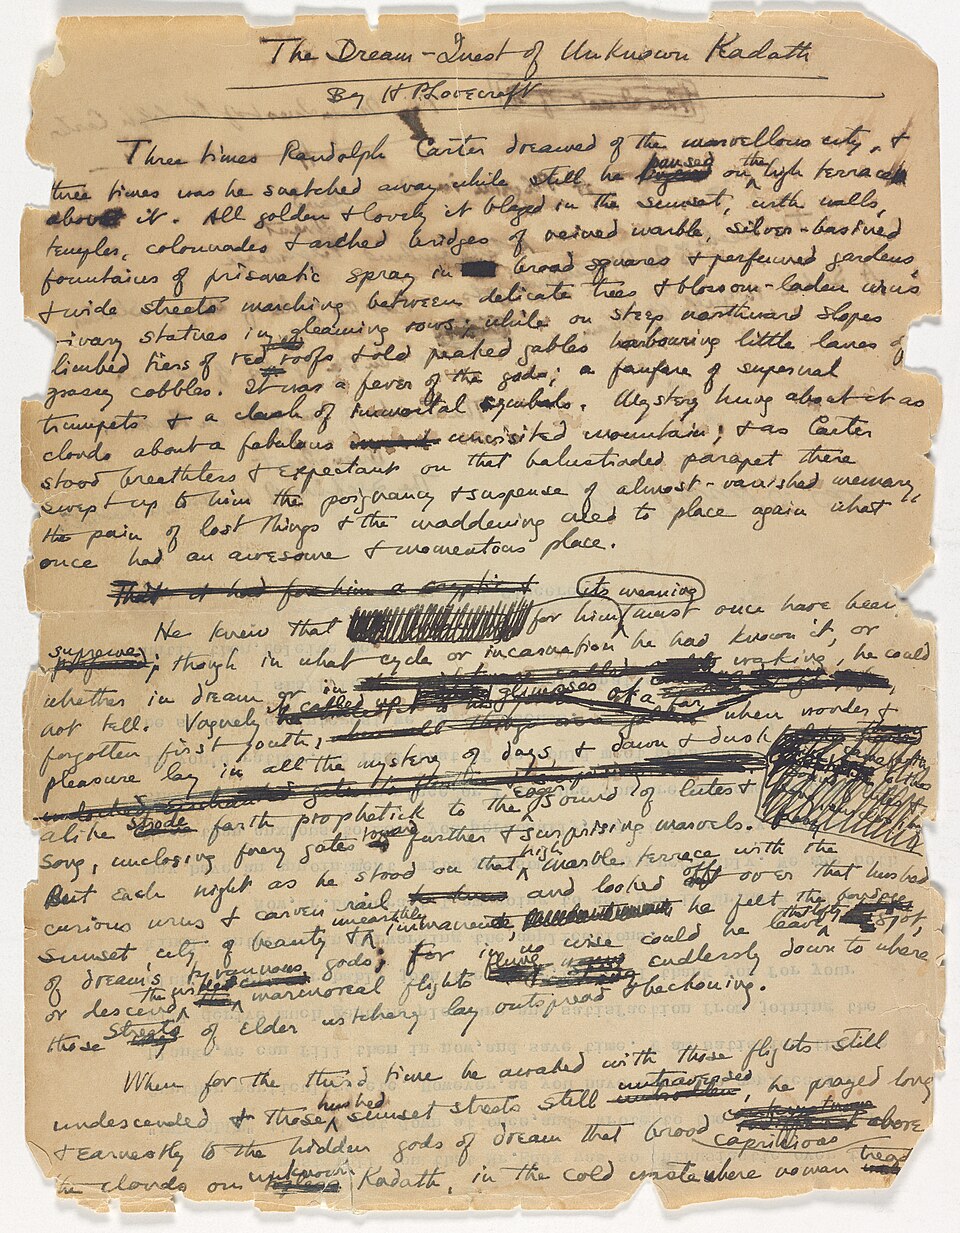 The Dream-Quest of Unknown Kadath
By H. P. Lovecraft
Three times Randolph Carter dreamed of the marvellous city, &
three times was he snatched away while still he paused on the high terrace
above it. All golden & lovely it blazed in the sunset, with walls,
temples, colonnades & arched bridges of veined marble, silver-basined
fountains of prismatic spray in broad squares & perfumed gardens,
& wide streets marching between delicate trees & blossom-laden urns
& ivory statues in gleaming rows; while on steep northward slopes
climbed tiers of red roofs & old peaked gables harbouring little lanes of
grassy cobbles. It was a fever of the gods; a fanfare of supernal
trumpets & a clash of immortal cymbals. Mystery hung about it as
clouds about a fabulous unvisited mountain; & as Carter
stood breathless & expectant on that balustraded parapet there
swept up to him the poignancy & suspense of almost-vanished memory,
the pain of lost things & the maddening need to place again what
once had an awesome & momentous place.
That it had for him a cryptic
He knew that for him its meaning must once have been
supreme; though in what cycle or incarnation he had known it, or
whether in dream or in waking, he could
not tell. Vaguely it called up glimpses of a far,
forgotten first youth, when wonder &
pleasure lay in all the mystery of days, & dawn & dusk
alike strode forth prophetick to the eager sound of lutes &
song, unclosing faery gates toward further & surprising marvels.
But each night as he stood on that high marble terrace with the
curious urns & carven rail and looked off over that hushed
sunset city of beauty & unearthly immanence, he felt the bondage
of dream's tyrannous gods; for in no wise could he leave that lofty spot,
or descend the wide marmoreal flights flung endlessly down to where
those streets of elder witchery lay outspread & beckoning.
When for the third time he awaked with those flights still
undescended & those hushed sunset streets still untraversed, he prayed long
& earnestly to the hidden gods of dream that brood capricious above
the clouds on unknown Kadath, in the cold waste where no man treads